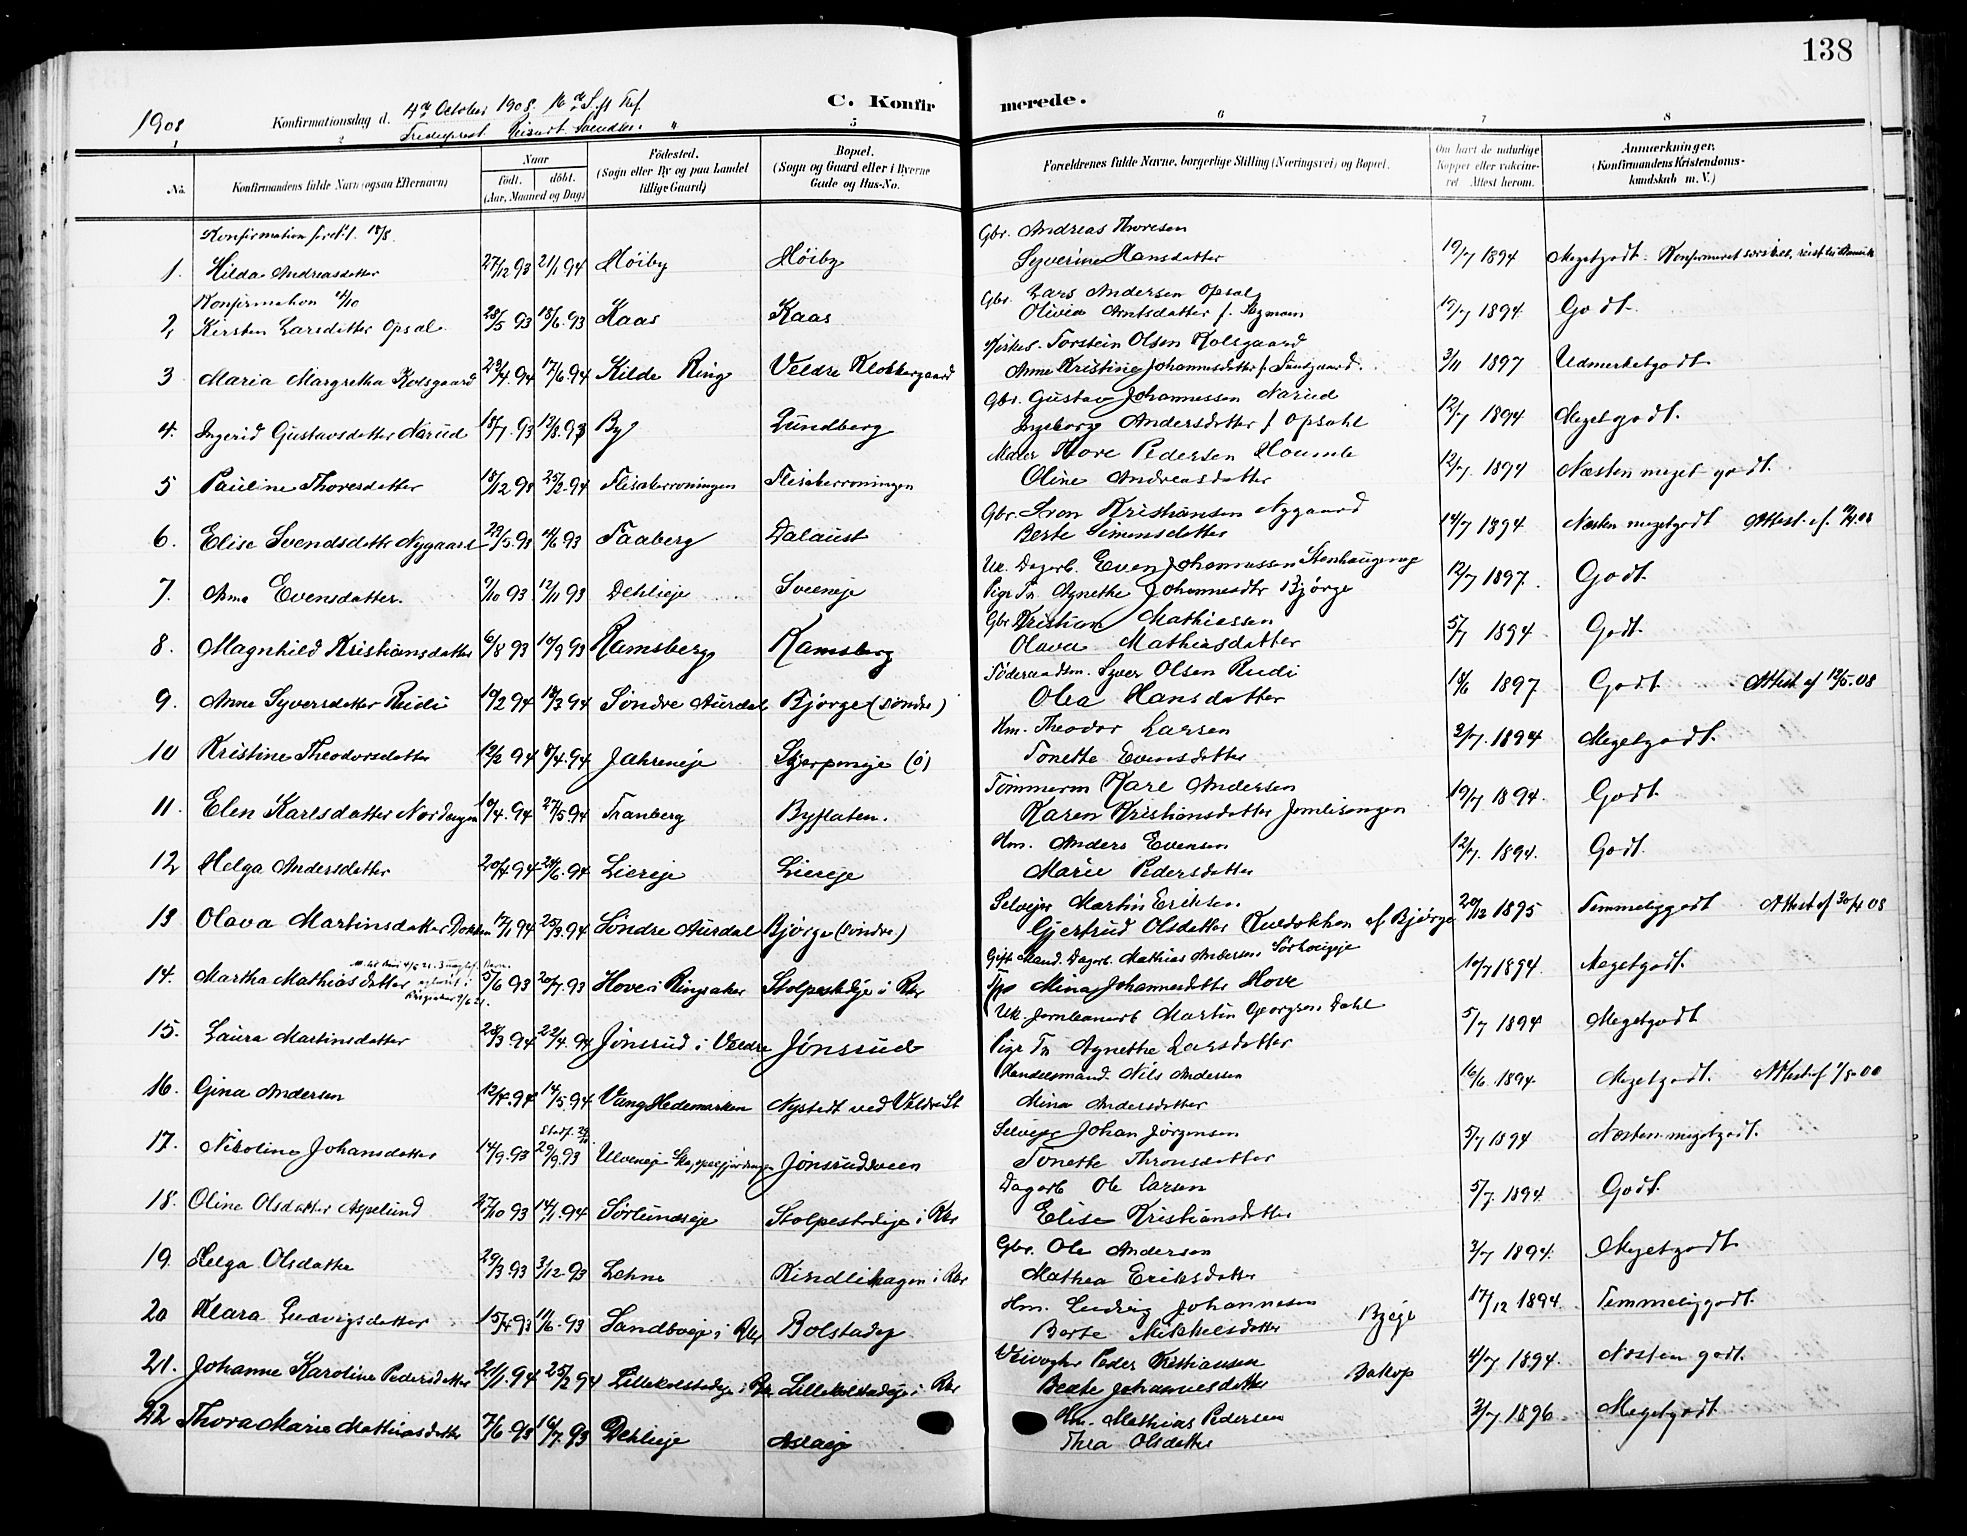 138
1908
Konfirmationsdag d. 4de October 1908. 16de S. ft Tref.
C. Konfirmerede.
1 2 5 6 7 8
No.
Konfirmandens fulde Navn (ogsaa Efternavn)
Naar
født. døbt.
(Aar, Maaned og Dag)
Fødested.
(Sogn eller By og paa Landet tillige Gaard)
Bopæl.
(Sogn og Gaard eller i Byerne Gade og Hus-No.
Forældrenes fulde Navne, borgerlige Stilling (Næringsvei) og Bopæl.
Om havt de naturlige Kopper eller vaccineret Attest herom.
Anmerkninger.
(Konfirmandens Kristendomskundskab m. V.)
1. Hilda Andreasdatter 27/12 93 21/1 94 Høiby Høiby Gbr. Andreas Thoresen
Syverine Hansdatter 19/7 1894 Megetgodt.
2, Kirsten Larsdatter Opsal 28/5 93 18/6 93 Kaas Kaas Gbr. Lars Andersen Opsal
Olivia 19/7 1894 Godt.
3 Maria Margretha Kolsgaard 23/4. 94 17/6. 94 Kilde Ring Veldre Klokkergaard Kirkes. Torstein Olsen Kolsgaard
Anne Kristine Johannesdatter f. 3/11 1897 Udmerketgodt
4. Ingerid Gustavsdatter Narud 18/7. 93 12/8. 93 By Lundberg Gbr. Gustav Johannessen Narud
Ingeborg Andersdatter f Opsahl 12/7 1894 Megetgodt.
5 Pauline Thoresdatter 18/12 93 25/2. 94 Flisaberroningen Flisaberroningen Maler Thore Pedersen
Oline Andreasdatter 12/7. 1894 Næsten meget godt.
6. Elise Svendsdatter Nygaard 29/5. 93 93 Faaberg Dalaust Gbr. Kristiansen Nygaard
Berte Simensdatter 14/7 1894 Næsten megetgodt Attest. af.
7. Anna Evensdatter. 9/10 93 12/11 93 Dehlieje Sveeneje Uk. Dagarb. Even Johannessen Stenhaugeng
Pige Fr. Agnethe Johannesdtr Bjørge 12/7 1897. Godt.
8. Magnhild Kristiansdatter 6/8 93 10/9 93 Ramsberg Ramsberg Gbr Kristian Mathiassen
Olava Mathiasdatter 5/7 1894 Godt.
9. Anne Syversdatter Rudi 10/2 94 18/3 94 Søndre Aurdal Bjørge (søndre) Føderaadsm. Syver Olsen Rudi
Olea Hansdatter 18/6 1897 Godt Attest af 12/5-08
10 Kristine Theodorsdatter 12/2 94 8/4. 94 Jahreneje Skjerpeneje (ö) Hm. Theodor Larsen
Tonette Evensdatter 2/7. 1894 Megetgodt.
11. Elen Karlsdatter Nordengen 10/4. 94 27/5. 94 Tranberg Byflaten. Tømmerm Karl Andersen
Karen Kristiansdatter Jemlisengen 19/7 1894. Godt.
12 Helga Andersdatter 20/4 94 24/6. 94 Liereje Liereje Hm. Anders Evensen
Marie Pedersdatter 12/7. 1894. Godt.
13 Olava Martinsdatter Dokken 17/1 94 25/3. 94 Søndre Aurdal Bjørge (søndre) Selvejer Martin Eriksen
Gjertrud Olsdatter af Bjørge 20/12 1895 Temmeliggodt Attest af 30/4 08
14. Martha Mathiasdatter 5/6 93 20/7. 93 Hove i Ringsaker Stolpestadeje i Rkr Gift Mand. Dagarb. Mathias Andersen
Mina Johannesdatter Hove 10/7 1894. Megetgodt.
15. Laura Martinsdatter 28/3 94 22/4. 94 Jønsrud i Veldre Jønsrud Uk. Jernbanearb Martin Georgsen Dahl
Pige Fr Agnethe Larsdatter 5/7 1894 Megetgodt.
16. Gina Andersen 12/4. 94 14/5. 94 Vang Hedemarken Nystedt ved Veldre St Handelsmand. Nils Andersen
Mina Andersdatter 16/6. 1894. Megetgodt. Attest af
17. Nikoline Johansdatter 14/9. 93 29/9. 93 Ulveneje Jønsrudsveen Selvejer Johan Jørgensen
Tonette Thronsdatter 5/7 1894 Næsten megetgodt.
18. Oline Olsdatter Aspelund 27/10 93 14/1. 94 Sørlundseje Stolpestadeje i Rkr Dagarb Ole Larsen
Elise Kristiansdatter 5/7. 1894 Godt.
19. Helga Olsdatter 29/3 93 3/12. 93 Lehne Kindlihagen i Rkr Gbr. Ole Andersen
Mathea Eriksdatter 3/7 1894. Megetgodt
20 Klara Ludvigsdatter 15/4. 93 11/6. 93 Sandboeje i Rkr Bolstadeje Hm. Ludvig Johannesen
Berte Mikkelsdatter Byeje 17/12 1894. Temmeliggodt.
21. Johanne Karoline Pedersdatter 21/1. 94 25/2 94 Lillekolstadeje i Rkr Lillekolstadeje i Rkr Veivogter Peder Kristiansen
Beate Johannesdatter 4/7 1894. Næsten godt.
22 Thora Marie Mathiasdatter 7/6 93 16/7. 93 Dehlieje Aslaeje Hm. Mathias Pedersen
Thea Olsdatter 3/7 1896 Megetgodt